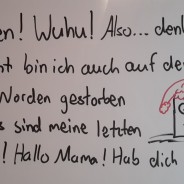 en! Wuhu! Also... denk
t bin ich auch auf de
Norden gestorben
s sind meine letzten
! Hallo Mama! Hab dich